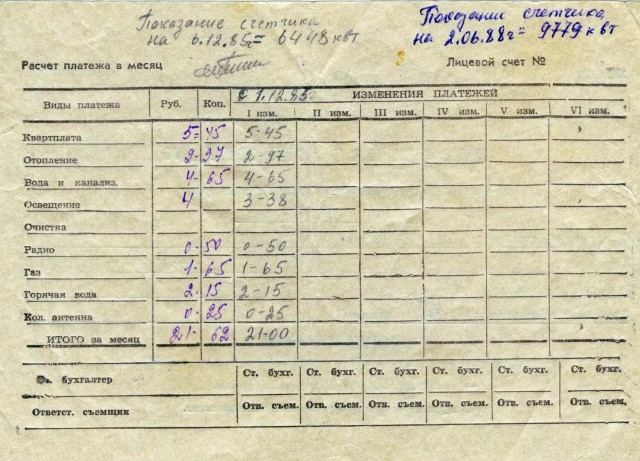 Показание счетчика
на 6.12.85г= 6448 квт
Показании счетчика
на 2.06.88г= 9779 квт
Расчет платежа в месяц
Лицевой счет №
Виды платежа Руб. Коп. с 1.12.85г ИЗМЕНЕНИЯ ПЛАТЕЖЕЙ
I изм. II изм. III изм. IV изм. V изм. VI изм.
Квартплата 5= 45 5-45
Отопление 2-97 2-97
Вода и канализ. 4-65 4-65
Освещение 4 3-38
Очистка
Радио 0-50 0-50
Газ 1-65 1-65
Горячая вода 2-15 2-15
Кол. антенна 0-25 0-25
ИТОГО за месяц 21-62 21-00
бухгалтер Ст. бухг. Ст. бухг. Ст. бухг. Ст. бухг. Ст. бухг. Ст. бухг.
Ответст. съемщик Отв. съем. Отв. съем. Отв. съем. Отв. съем. Отв. съем. Отв. съем.